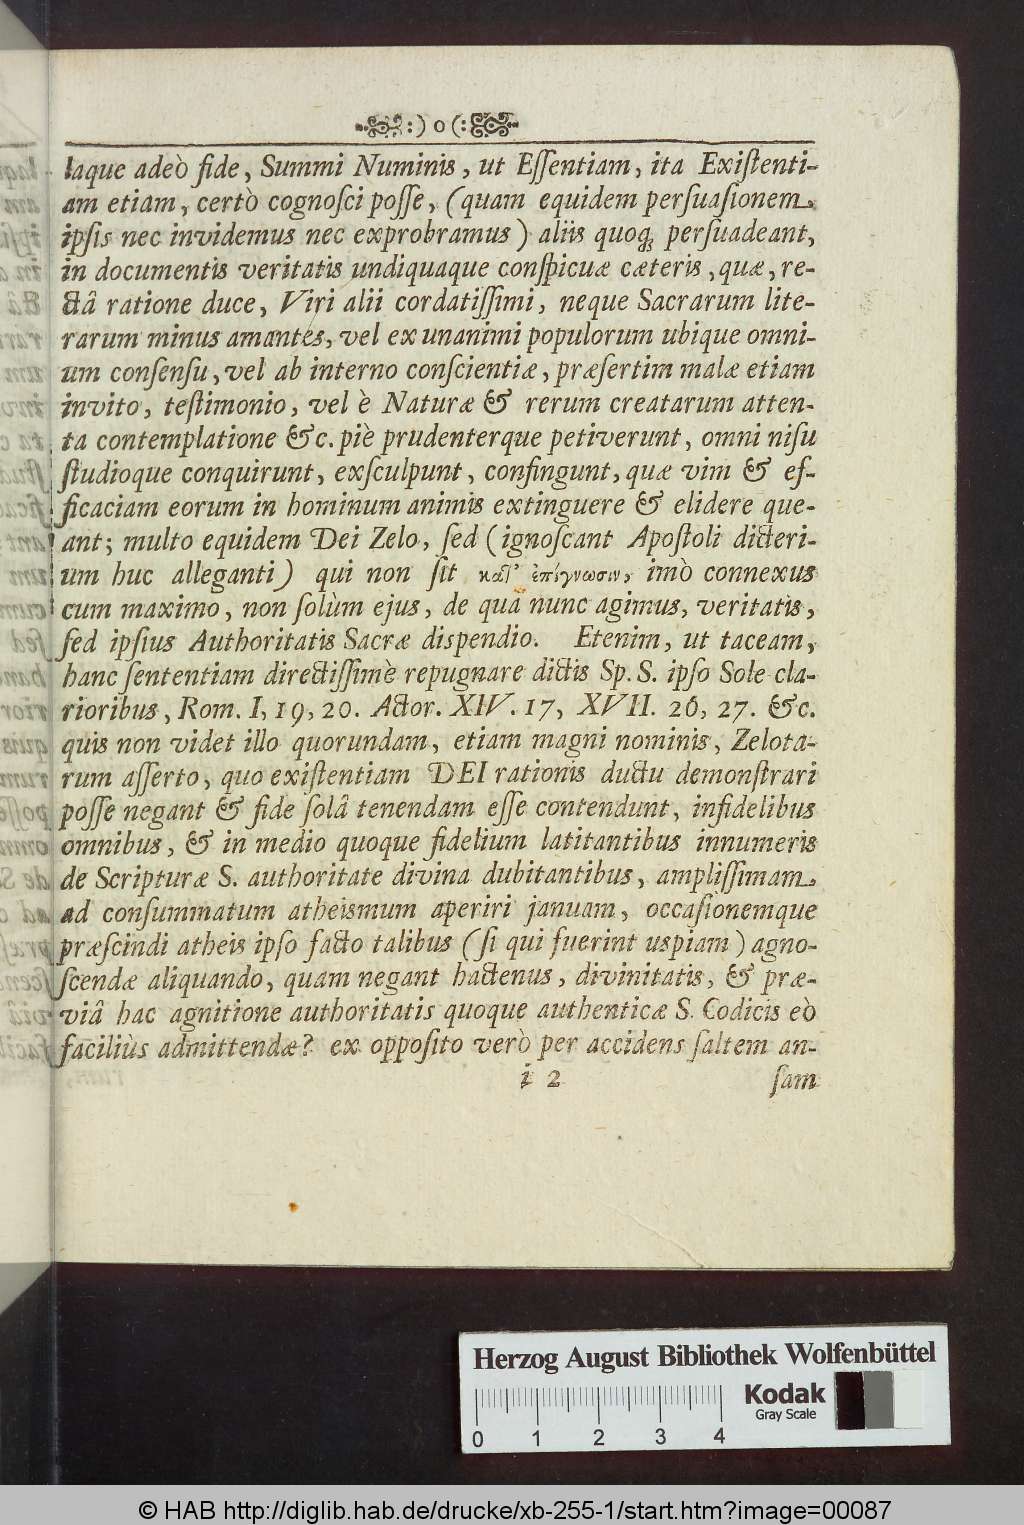 :) o (:
laque adeò fide, Summi Numinis, ut Eſſentiam, ita Exiſtenti-
am etiam, certò cognoſci poſſe, (quam equidem perſuaſionem
ipſis nec invidemus nec exprobramus) aliis quoq; perſuadeant,
in documentis veritatis undiquaque conſpicuæ cæteris, quæ, re-
ctâ ratione duce, Viri alii cordatiſſimi, neque Sacrarum lite-
rarum minus amantes, vel ex unanimi populorum ubique omni-
um conſenſu, vel ab interno conſcientiæ, præſertim malæ etiam
invito, teſtimonio, vel è Naturæ & rerum creatarum atten-
ta contemplatione &c. piè prudenterque petiverunt, omni niſu
ſtudioque conquirunt, exſculpunt, confingunt, quæ vim & ef-
ficaciam eorum in hominum animis extinguere & elidere que-
ant; multo equidem Dei Zelo, ſed (ignoſcant Apoſtoli dicteri-
um huc alleganti) qui non ſit κατ' ἐπίγνωσιν, imò connexus
cum maximo, non ſolùm ejus, de qua nunc agimus, veritatis,
ſed ipſius Authoritatis Sacræ diſpendio. Etenim, ut taceam,
hanc ſententiam directiſſimè repugnare dictis Sp. S. ipſo Sole cla-
rioribus, Rom. I, 19, 20. Actor. XIV. 17, XVII. 26, 27. &c.
quis non videt illo quorundam, etiam magni nominis, Zelota-
rum aſſerto, quo exiſtentiam DEI rationis ductu demonſtrari
poſſe negant & fide ſolâ tenendam eſſe contendunt, infidelibus
omnibus, & in medio quoque fidelium latitantibus innumeris
de Scripturæ S. authoritate divina dubitantibus, ampliſſimam
ad conſummatum atheiſmum aperiri januam, occaſionemque
præſcindi atheis ipſo facto talibus (ſi qui fuerint uſpiam) agno-
ſcendæ aliquando, quam negant hactenus, divinitatis, & præ-
viâ hac agnitione authoritatis quoque authenticæ S. Codicis eò
faciliùs admittendæ? ex oppoſito verò per accidens ſaltem an-
i 2 ſam
Herzog August Bibliothek Wolfenbüttel
Kodak
Gray Scale
0 1 2 3 4
© HAB http://diglib.hab.de/drucke/xb-255-1/start.htm?image=00087